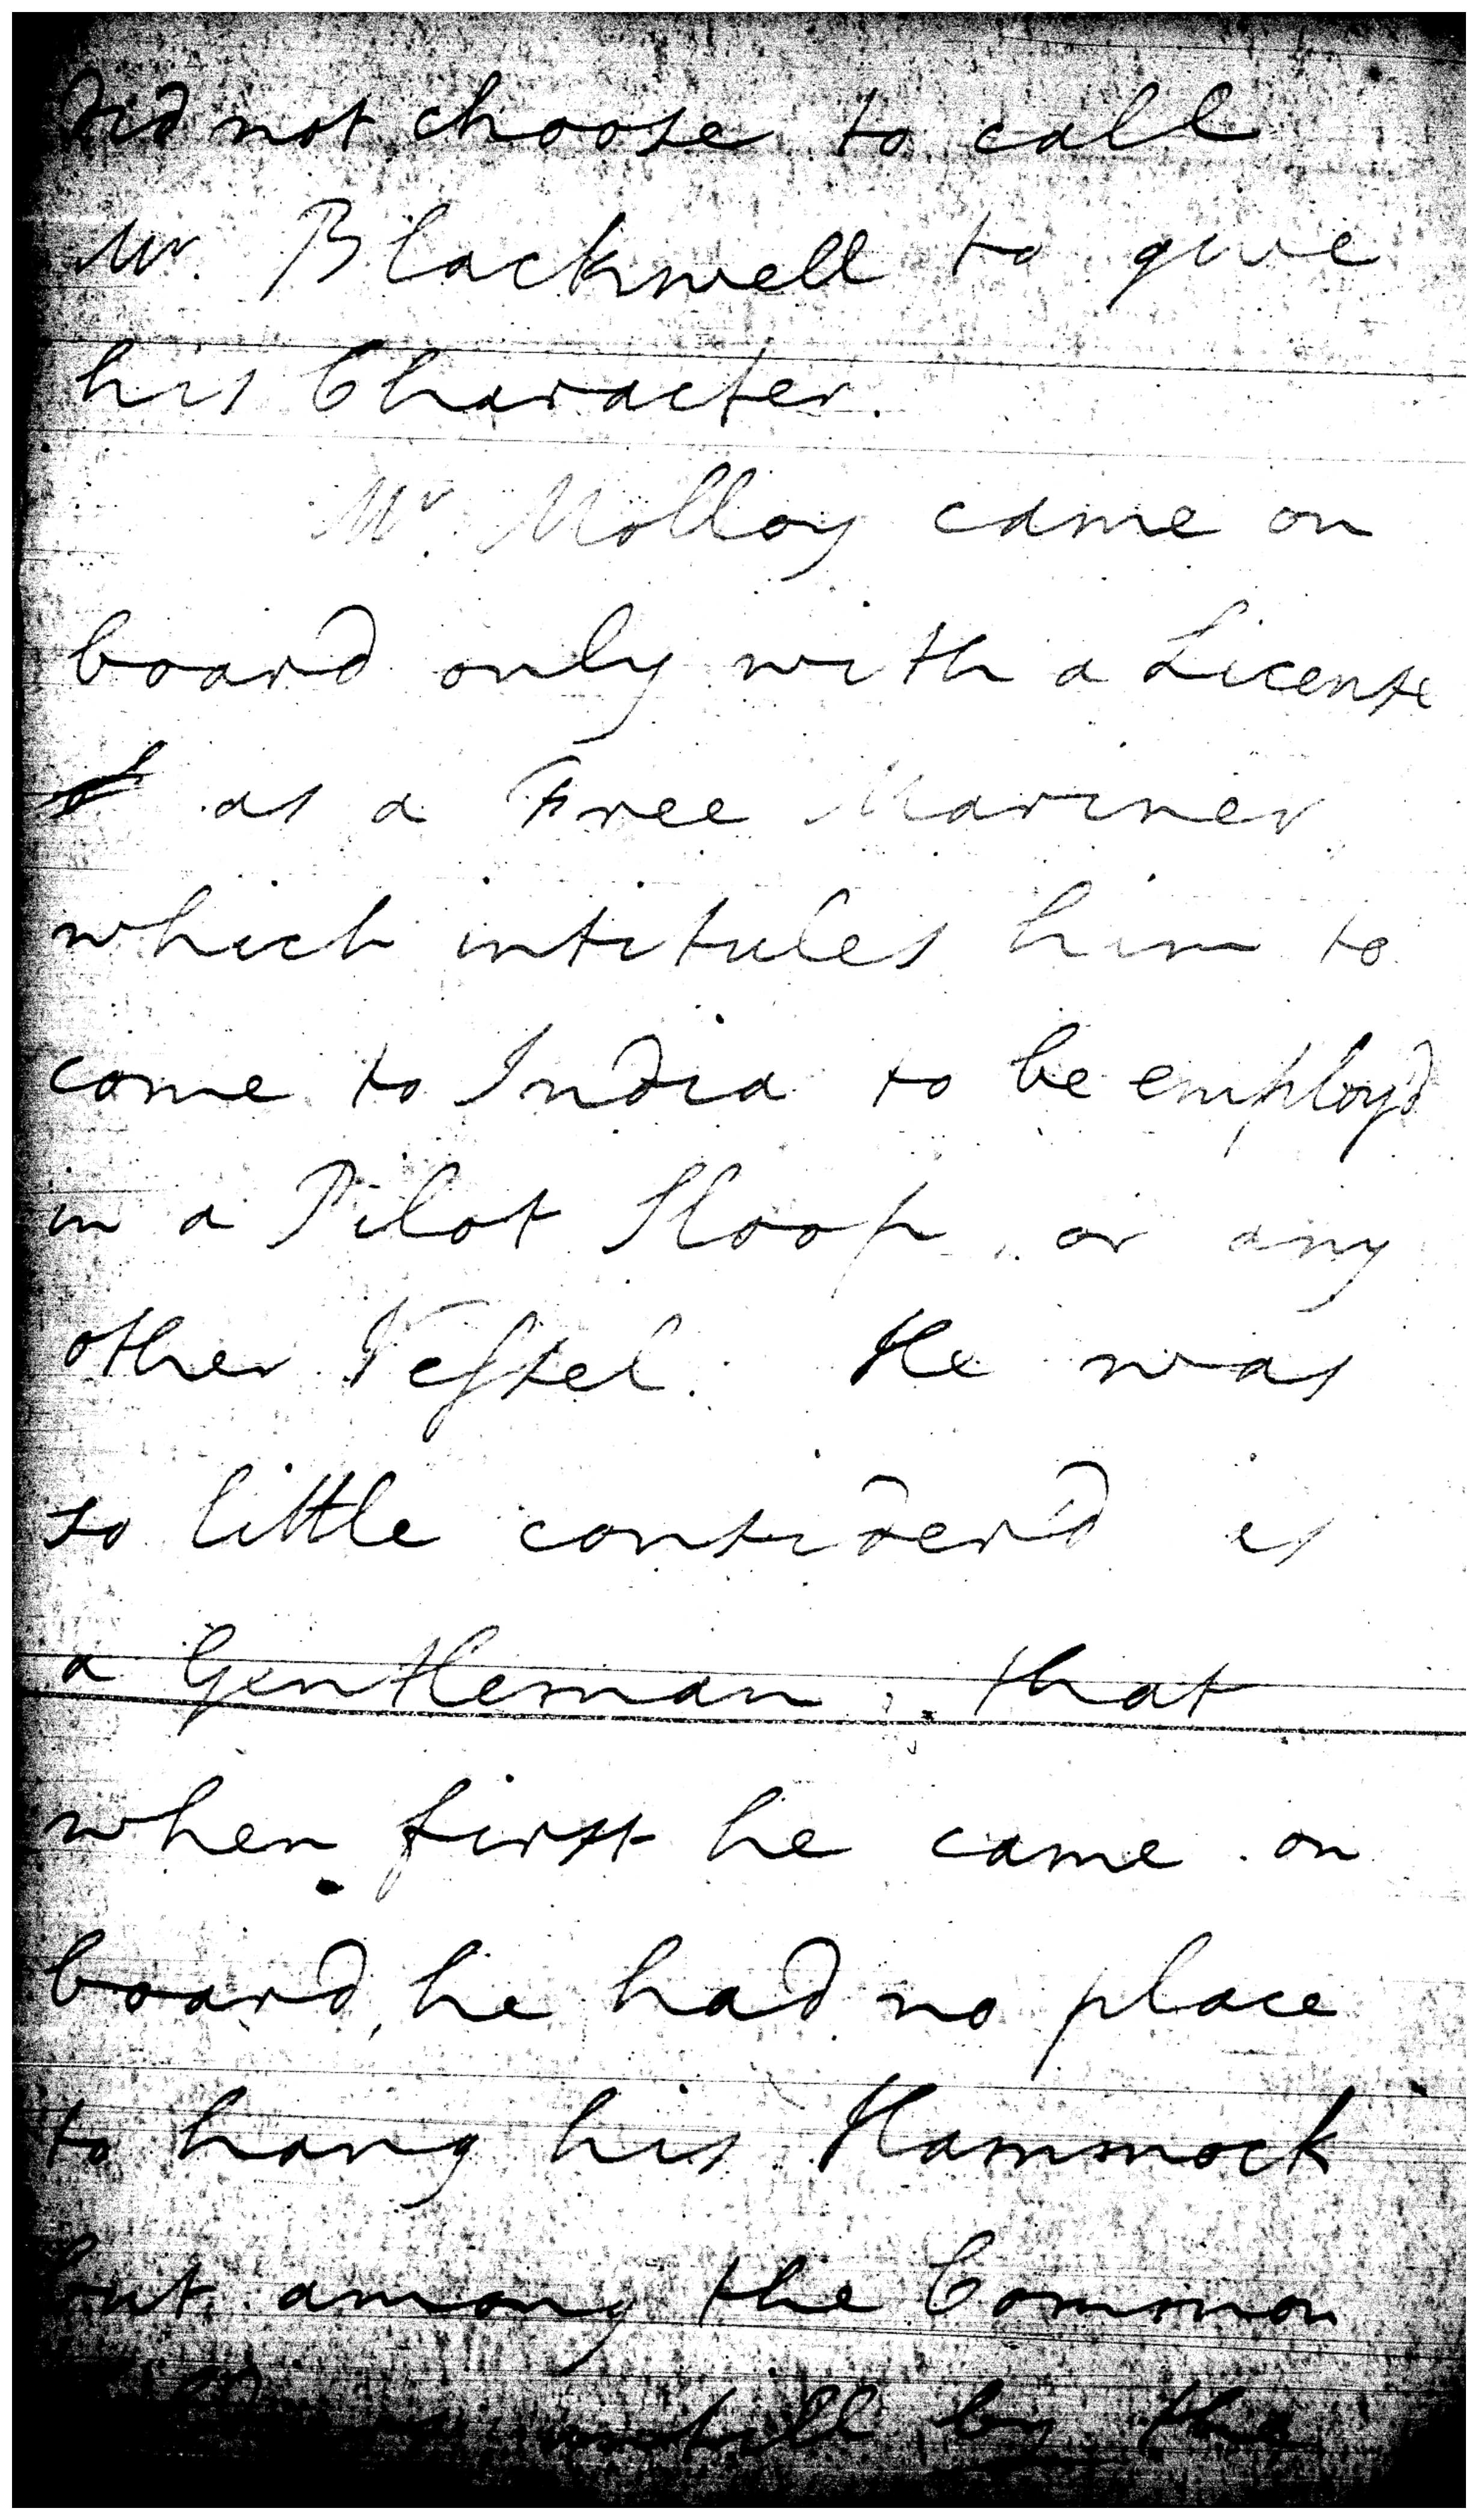 did not choose to call
Mr. Blackwell to give
his Character.
Mr. Molloy came on
board only with a License
as a Free Mariner
which intitules him to
come to India to be employ'd
in a Pilot Sloop, or any
other Vessel. He was
so little consider'd as
a Gentleman, that
when first he came on
board, he had no place
to hang his Hammock
but among the Common
untill by the